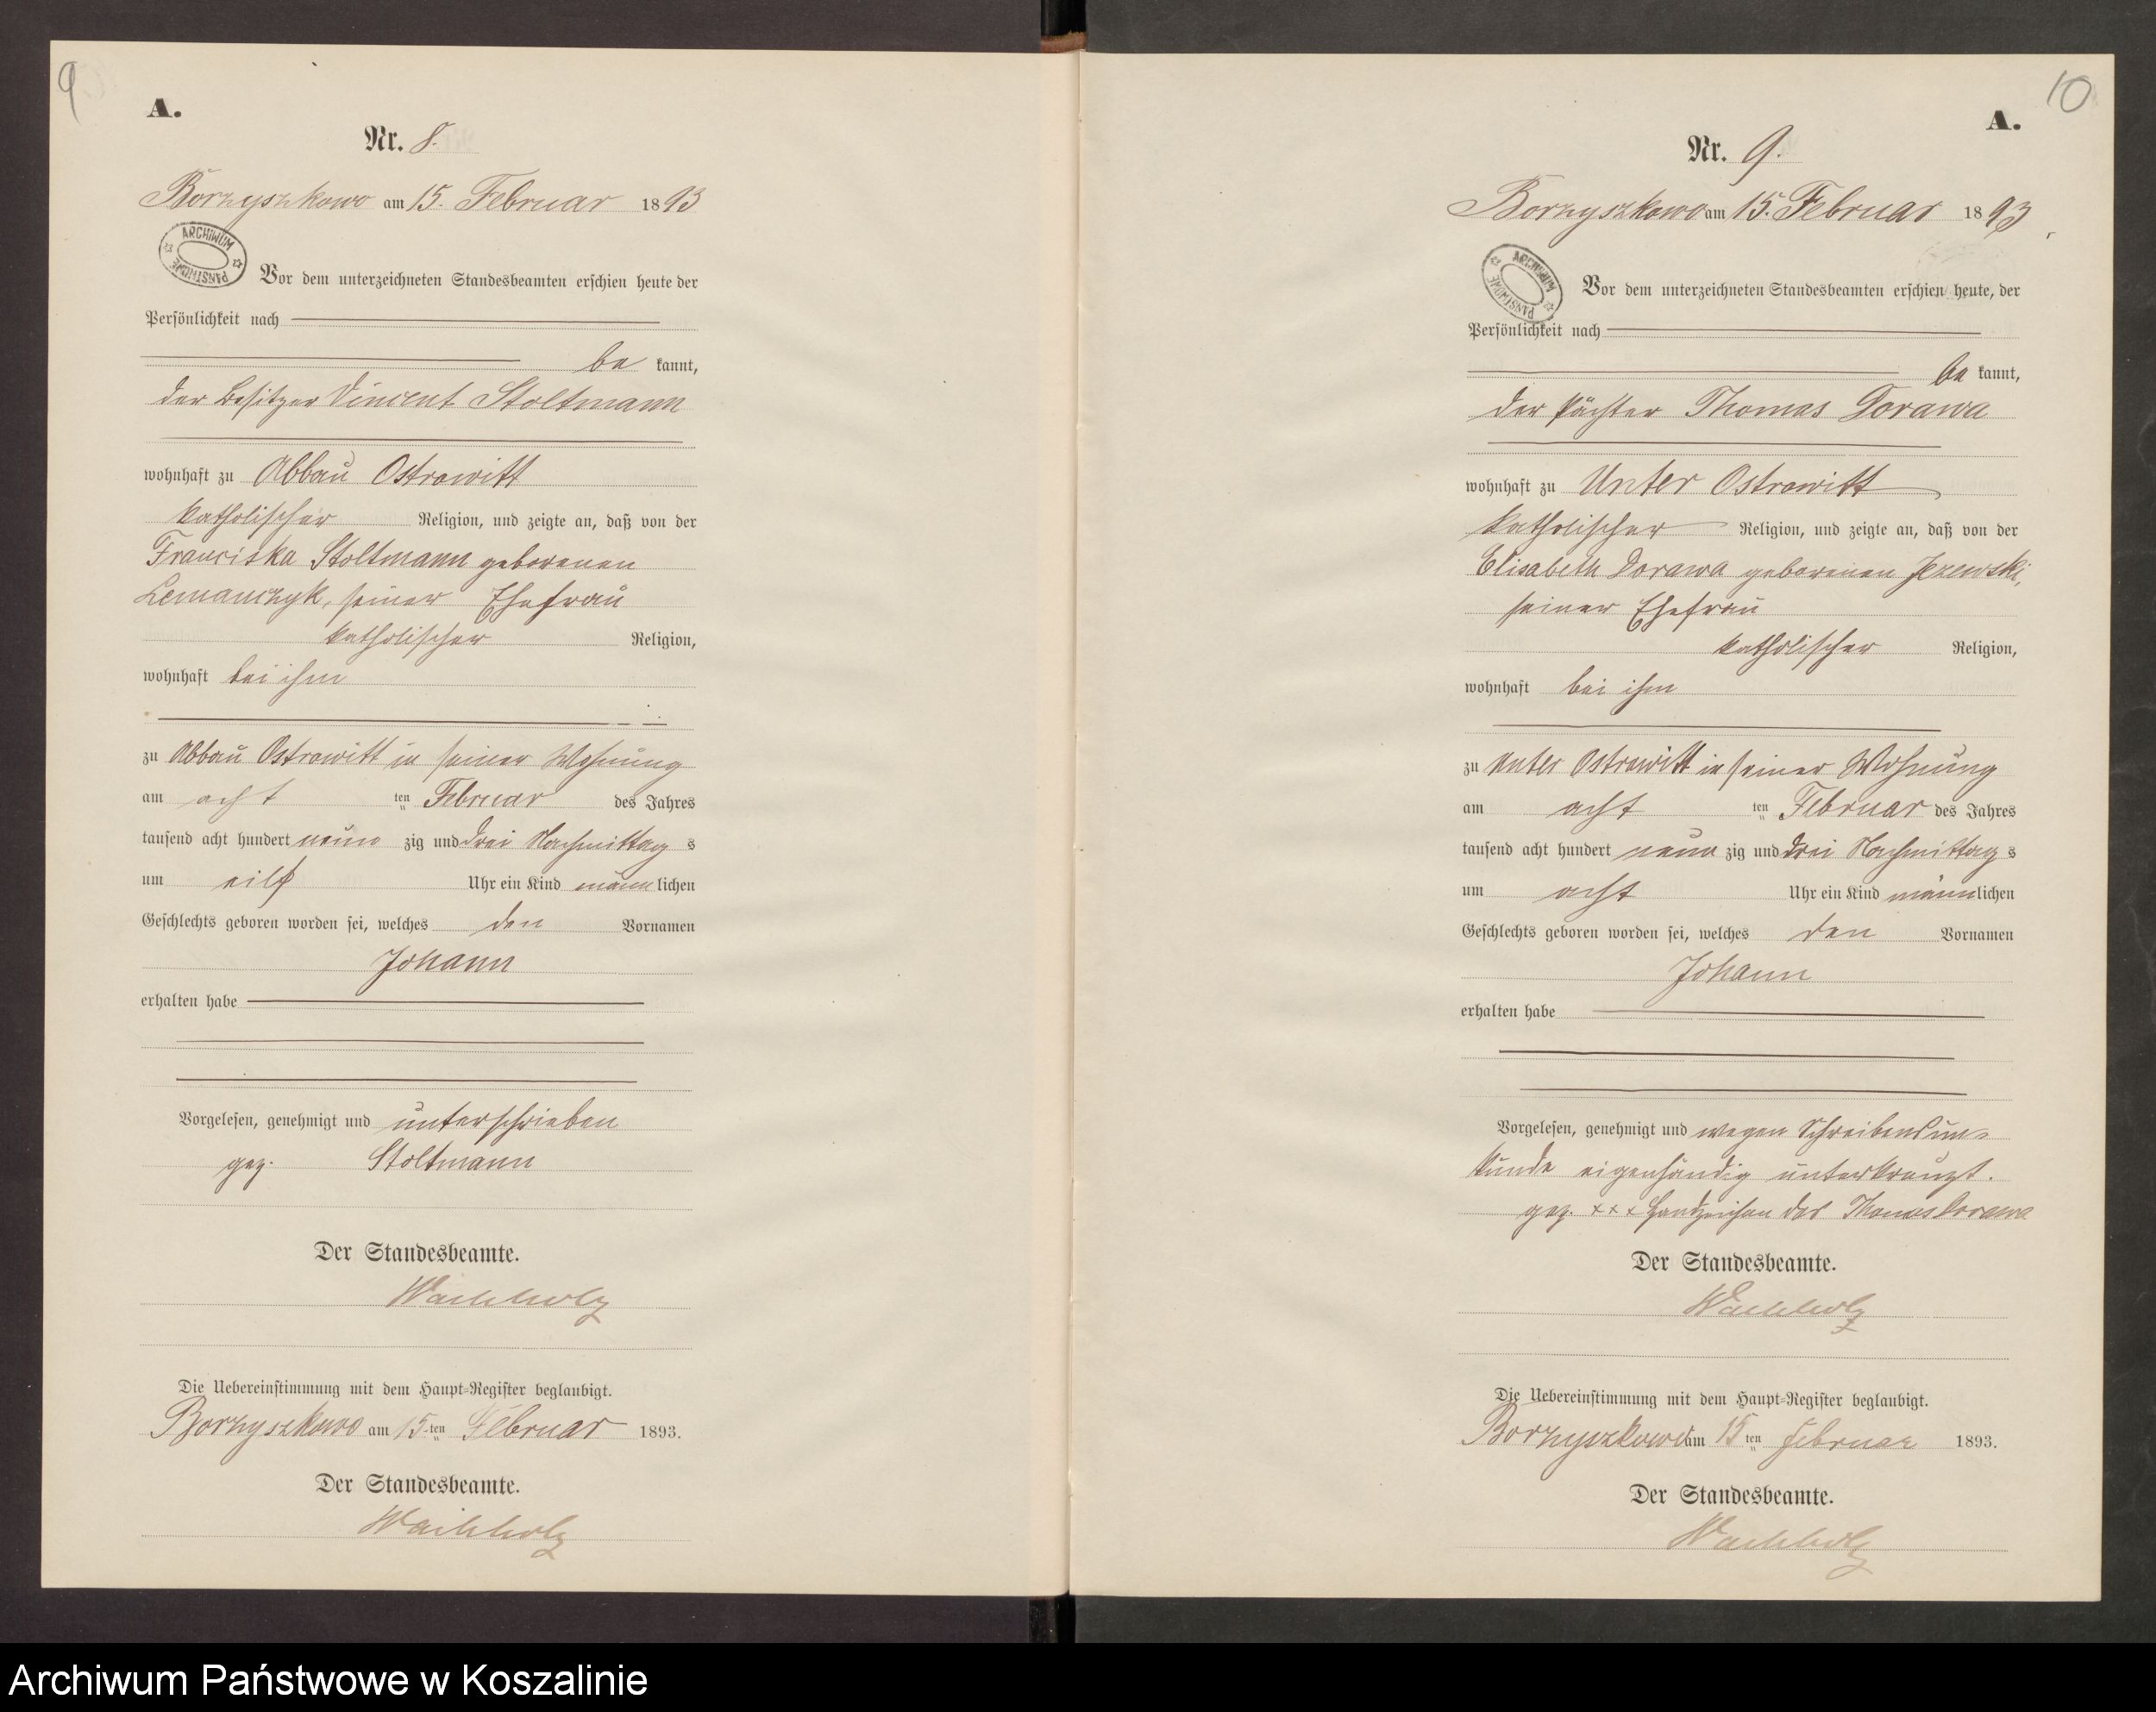 9
A.
Nr. 8.
Borzyszkowo am 15. Februar 1893
ARCHIWUM PAŃSTWOWE
Vor dem unterzeichneten Standesbeamten erschien heute der
Persönlichkeit nach
be kannt,
der Besitzer Vincent Stoltmann
wohnhaft zu Abbau Ostrowitt
katholischer Religion, und zeigte an, daß von der
Franciska Stoltmann geborenen
Lemanczyk, seiner Ehefrau
katholischer Religion,
wohnhaft bei ihm
zu Abbau Ostrowitt in seiner Wohnung
am acht ten Februar des Jahres
tausend acht hundert neun zig und drei Nachmittag s
um eilf Uhr ein Kind männ lichen
Geschlechts geboren worden sei, welches den Vornamen
Johann
erhalten habe
Vorgelesen, genehmigt und unterschrieben
gez. Stoltmann
Der Standesbeamte.
Wachholz
Die Uebereinstimmung mit dem Haupt-Register beglaubigt.
Borzyszkowo am 15 ten Februar 1893.
Der Standesbeamte.
Wachholz
10
A.
Nr. 9.
Borzyszkowo am 15. Februar 1893
ARCHIWUM PAŃSTWOWE
Vor dem unterzeichneten Standesbeamten erschien heute, der
Persönlichkeit nach
be kannt,
der Pächter Thomas Dorawa
wohnhaft zu Unter Ostrowitt
katholischer Religion, und zeigte an, daß von der
Elisabeth Dorawa geborenen Jezewski,
seiner Ehefrau
katholischer Religion,
wohnhaft bei ihm
zu Unter Ostrowitt in seiner Wohnung
am acht ten Februar des Jahres
tausend acht hundert neun zig und drei Nachmittag s
um acht Uhr ein Kind männ lichen
Geschlechts geboren worden sei, welches den Vornamen
Johann
erhalten habe
Vorgelesen, genehmigt und wegen Schreibensun-
kunde eigenhändig unterkreuzt.
gez. xxx Handzeichen des Thomas Dorawa
Der Standesbeamte.
Wachholz
Die Uebereinstimmung mit dem Haupt-Register beglaubigt.
Borzyszkowo am 15 ten Februar 1893.
Der Standesbeamte.
Wachholz
Archiwum Państwowe w Koszalinie